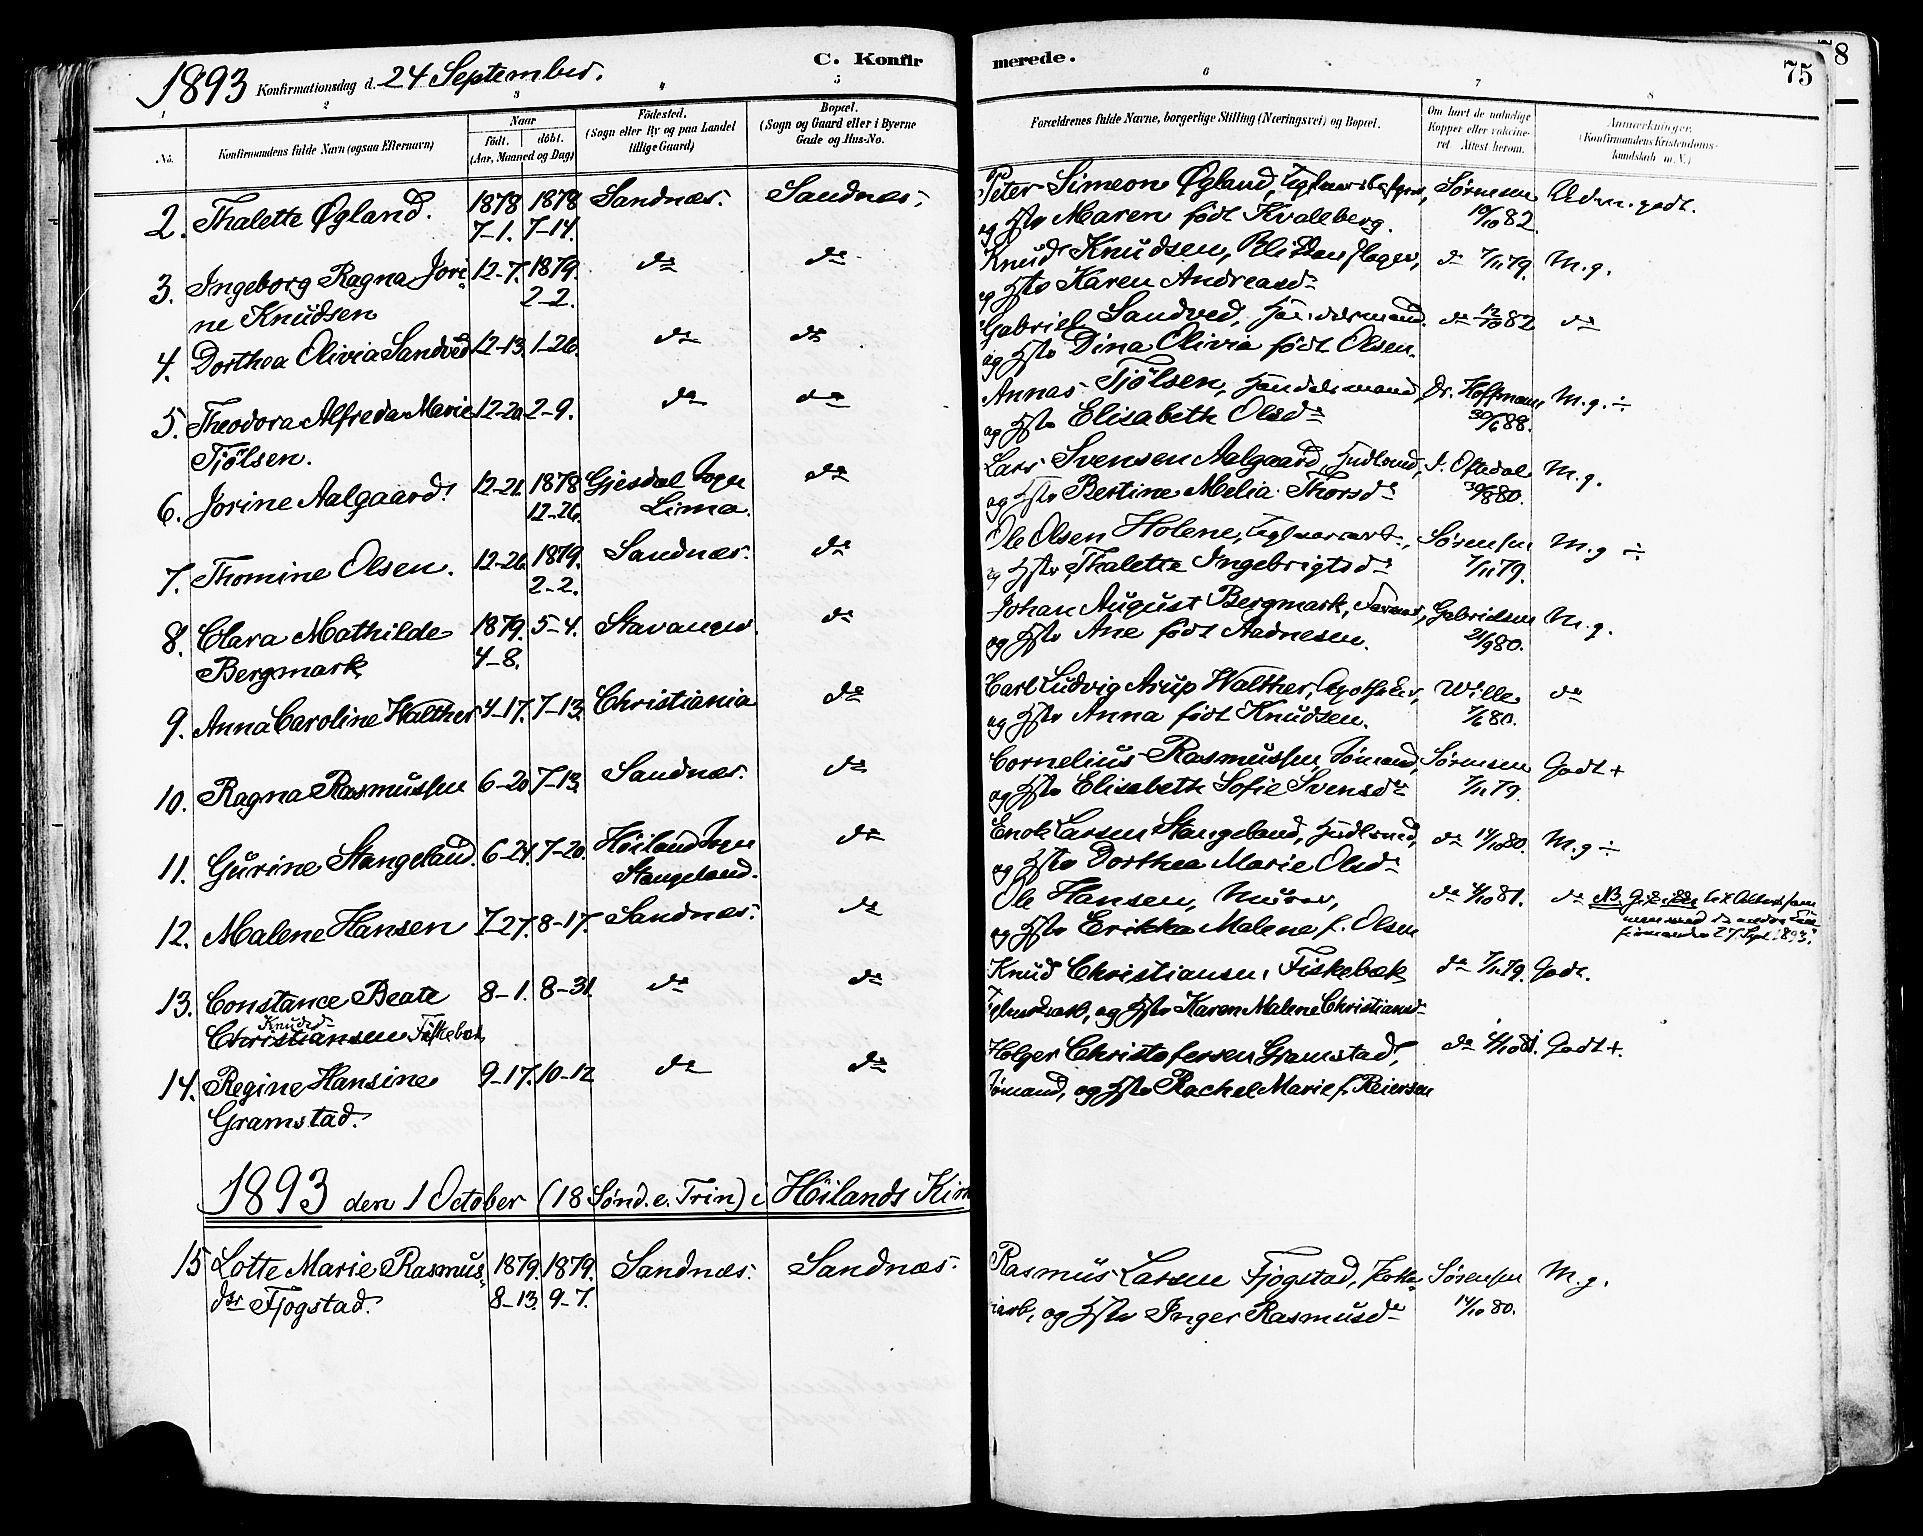 1893 Konfirmationsdag d. 24 September.
C. Konfirmerede.
75
78
1 2 3 4 5 6 7 8
No.
Konfirmandens fulde Navn (ogsaa Efternavn)
Naar
født. døbt.
(Aar, Maaned og Dag)
Fødested.
(Sogn eller By og paa Landet
tillige Gaard)
Bopæl.
(Sogn og Gaard eller i Byerne
Gade og Hus-No.
Forældrenes fulde Navne, borgerlige Stilling (Næringsvei) og Bopæl.
Om havt de naturlige
Kopper eller vaccine-
ret. Attest herom.
Anmerkninger.
(Konfirmandens Kristendoms-
kundskab m. V.)
2. Thalette Øgland. 1878 1878 Sandnæs. Sandnæs. Peter Simeon Øgland, Sørensen
7-1. 7-14. og Hstr Maren født Kvaleberg. 10/10 82. Udm. godt.
3. Ingeborg Ragna Jori- 12-7. 1879. do do Knud Knudsen, do 7/11 79. M.g.
ne Knudsen 2-2. og Hstr Karen Andreasdr
4. Dorthea Olivia Sandved 12-13. 1-26. do do Gabriel Sandved, Handelsmand. do 12/10 82 do
og Hstr Dina Olivia født Olsen.
5. Theodora Alfreda Marie 12-20. 2-9. do do Annas Tjölsen, Handelsmand, Dr. Hoffmann M.g. ÷
Tjölsen. og Hstr Elisabeth Olsdr 30/6 88.
6. Jorine Aalgaard. 12-21. 1878 Gjesdal Sogn do Lars Svensen Aalgaard, J. Oftedal M.g.
12-26. Lima. og Hstr Bertine Melia Thorsdr 30/8 80.
7. Thomine Olsen. 12-26. 1879. Sandnæs. do Ole Olsen Holene, Sørensen M.g ÷
2-2. og Hstr Thalette Ingebrigtsdr 7/11 79.
8. Clara Mathilde 1879. 5-4. Stavanger. do Johan August Bergmark, Farver, Gabrielsen M.g.
Bergmark 4-8. og Hstr Ane født Aadnesen. 21/9 80.
9. Anna Caroline Walther 4-17. 7-13. Christiania do Carl Ludvig Arup Walther, Apotheker, Wille do
og Hstr Anna født Knudsen. 7/6 80.
10. Ragna Rasmussen 6-20 7-13. Sandnæs. do Cornelius Rasmussen, Sømand, Sørensen Godt +
og Hstr Elisabeth Sofie Svensdr 7/11 79.
11. Gurine Stangeland. 6-24. 7-20. Höiland Sogn do Enok Larsen Stangeland, do 14/10 80. M.g ÷
Stangeland. og Hstr Dorthea Marie Olsdr
12. Malene Hansen 7-27. 8-17. Sandnæs. do Ole Hansen, Murer, do 4/10 81. do NB.
og Hstr Erikka Malene f. Olsen 27 Sept. 1893.
13. Constance Beate 8-1. 8-31. do do Knud Christiansen Fiskebæk do 7/11 79. Godt.
Knudsd-
Christiansen Fiskebæk og Hstr Karen Malene Christiansd-
14. Regine Hansine 9-17. 10-12 do do Holger Christofersen Gramstad, do 4/10 81. Godt +.
Gramstad. Sømand, og Hstr Rachel Marie f. Reiersen
1893 den 1 October (18 Sønd. e. Trin) i Höilands Kirk
15 Lotte Marie Rasmus- 1879. 1879. Sandnæs. Sandnæs. Rasmus Larsen Fjogstad, Sørensen M.g.
dtr Fjogstad. 8-13. 9-7. og Hstr Inger Rasmusdr 14/10 80.